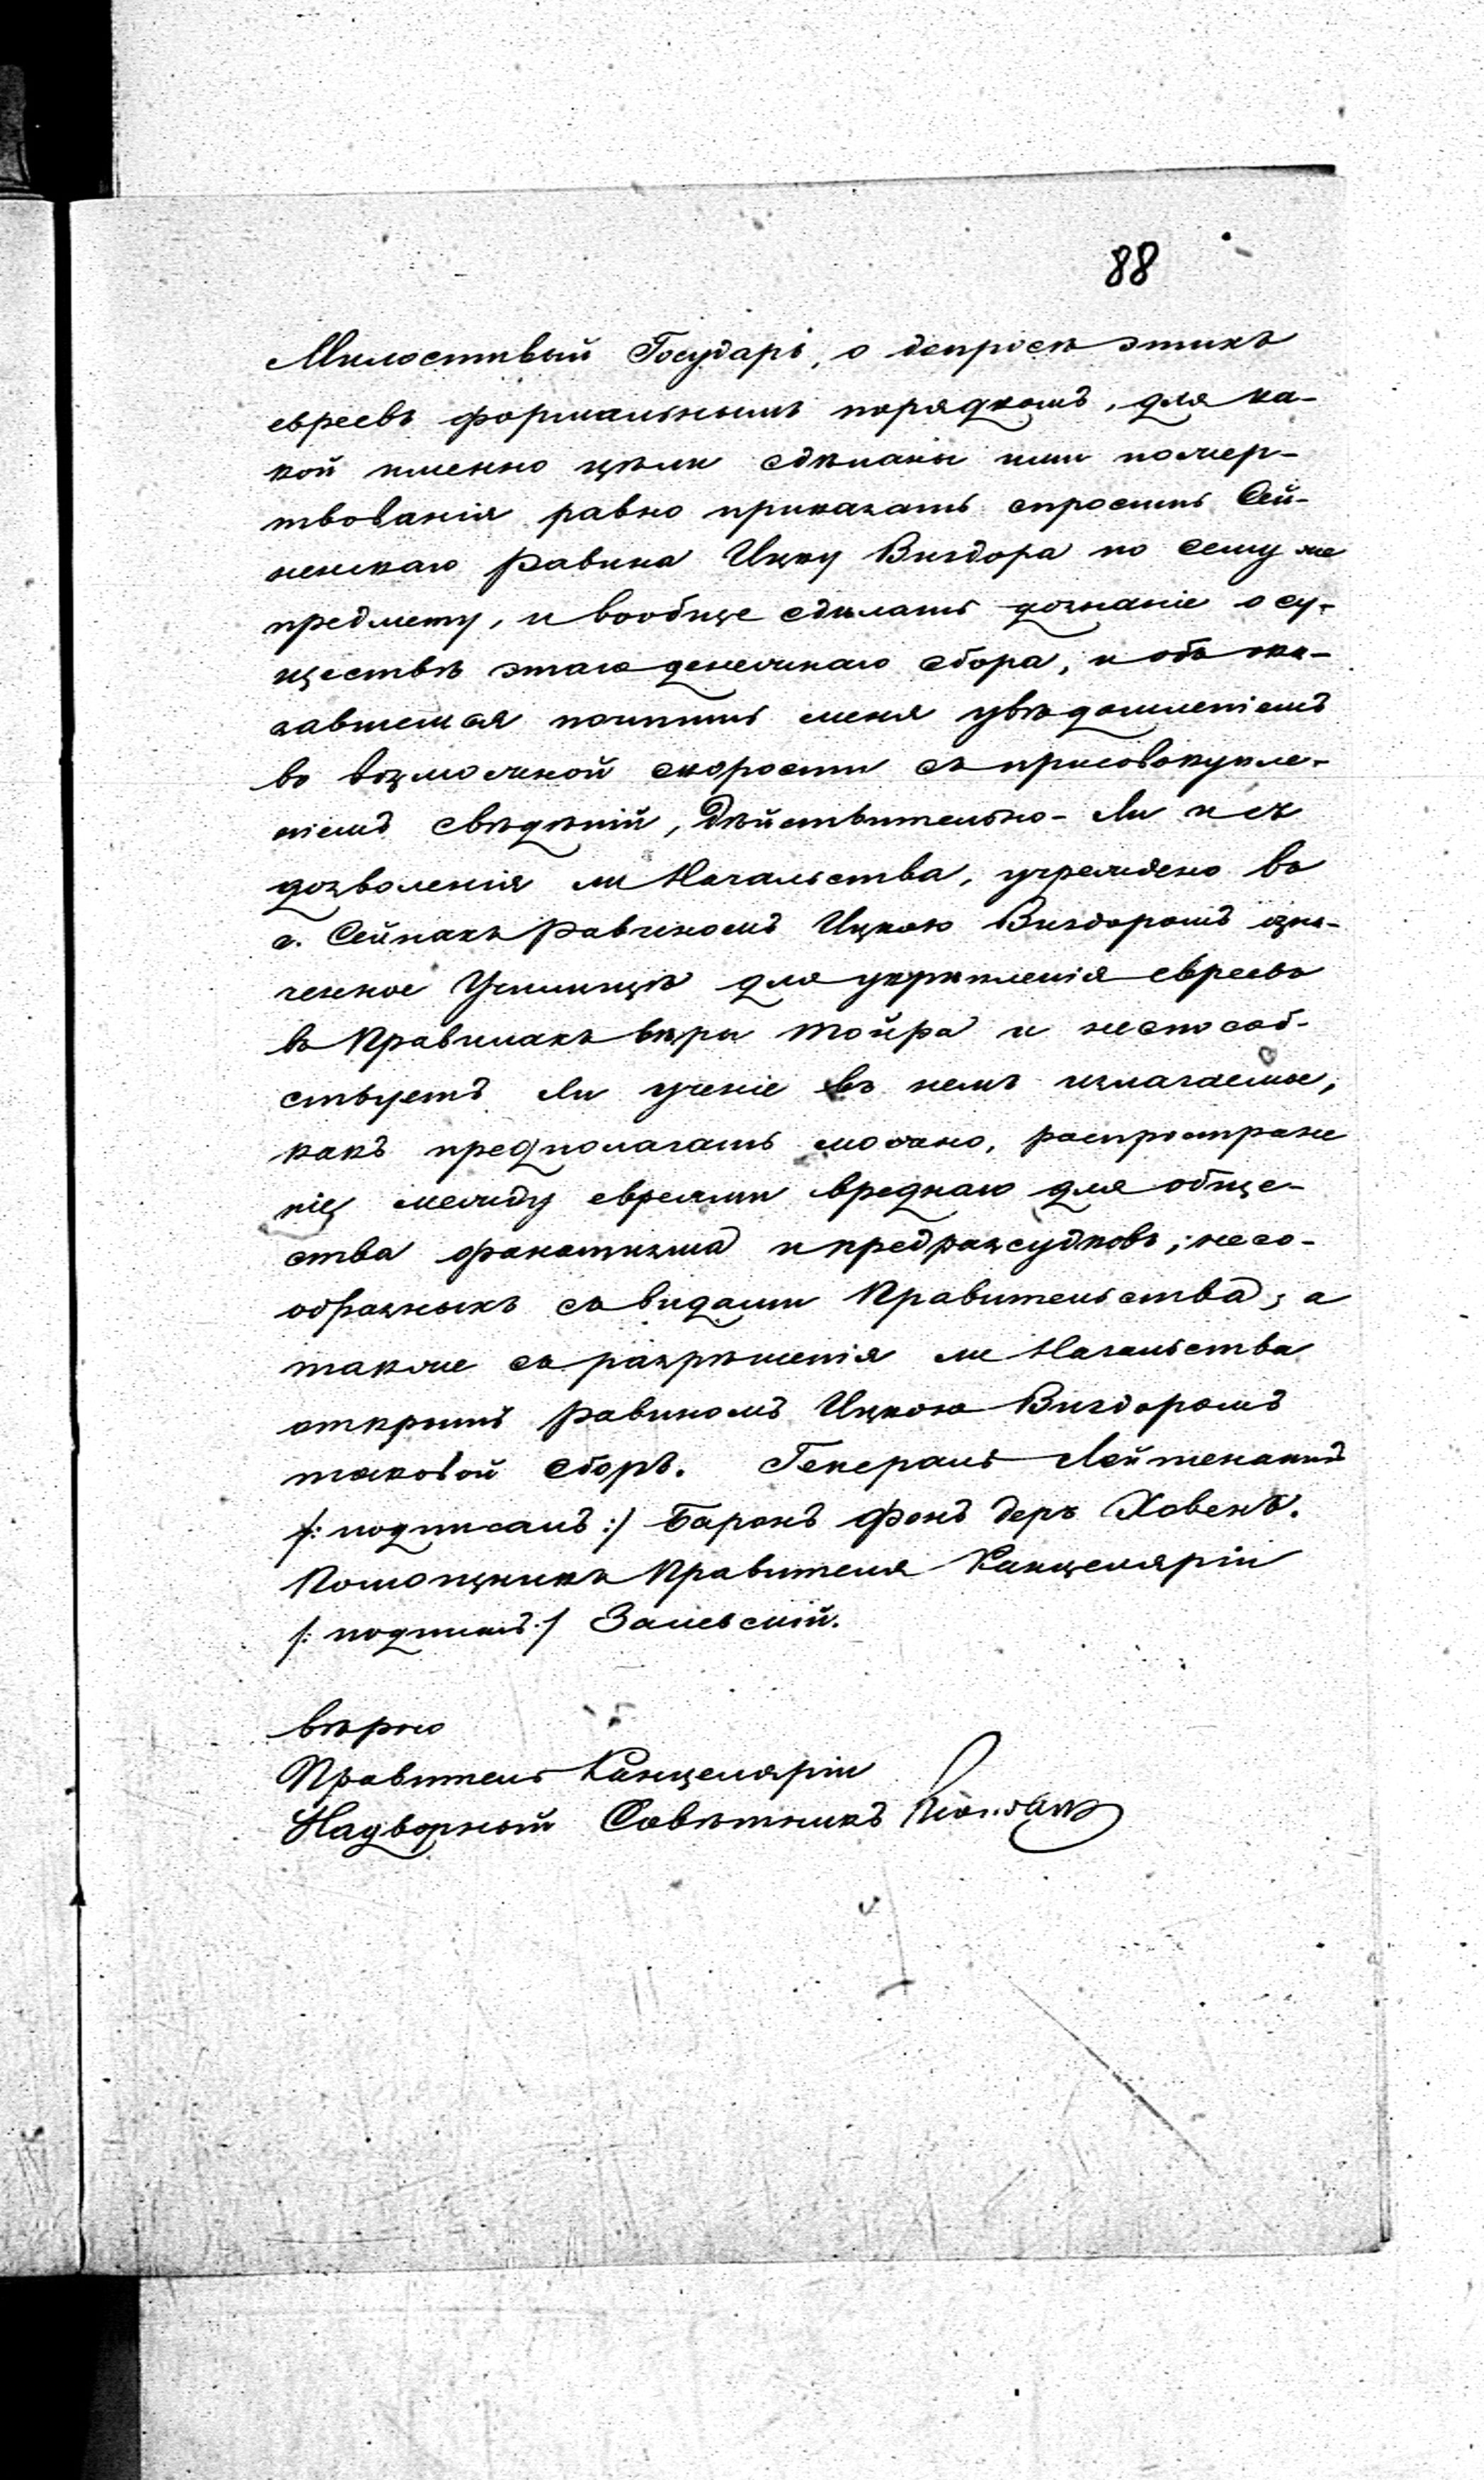 88
Милостивый Государь, о допросѣ этихъ
евреевъ формальнымъ порядкомъ, для ка-
кой именно цѣли сдѣланы ими пожер-
твованія равно приказать спросить Сей-
ненскаго Равина Ицку Вигдора по сему же
предмету, и вообще сдѣлать дознаніе о су-
ществѣ этаго денежнаго сбора, и объ ока-
завшемся почтить меня увѣдомленіемъ
во возможной скорости съ присовокупле-
ніемъ свѣдѣній, дѣйствительно-ли и съ
дозволенія ли Начальства, учреждено въ
г. Сейнахъ Равиномъ Ицкою Вигдоромъ озна-
ченное Училищѣ для укрѣпленія евреевъ
въ Правилахъ вѣры Тойра и неспособ-
ствуетъ ли ученіе въ немъ излагаемое,
какъ предполагать можно, распростране
нію между евреями вреднаго для обще-
ства фанатизма и предразсудковъ, несо-
образныхъ съ видами Правительства, а
также съ разрѣшенія ли Начальства
открытъ Равиномъ Ицкою Вигдоромъ
таковой сборъ. Генералъ Лейтенантъ
/: подписалъ :/ Баронъ фонъ деръ Ховенъ.
Помощникъ Правителя Канцеляріи
/: подписалъ :/ Залевскій.
Вѣрно
Правитель Канцеляріи
Надворный Совѣтникъ